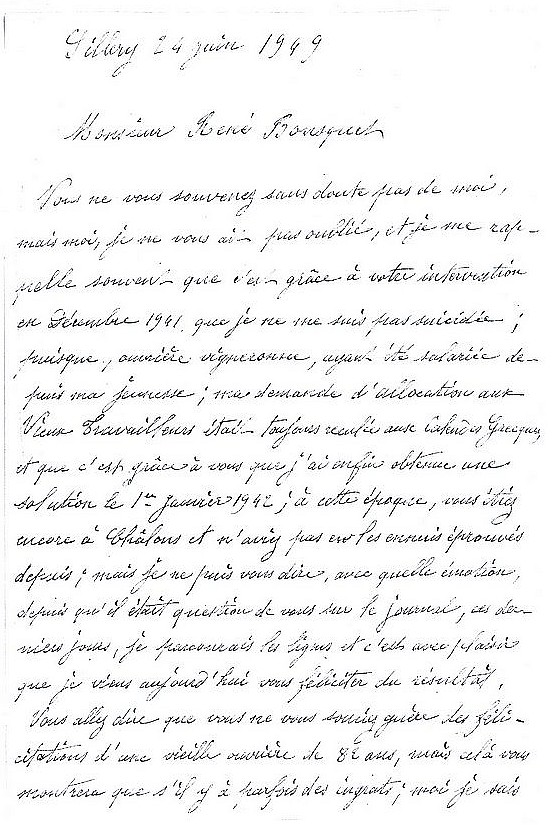 Sillery 24 juin 1949
Monsieur René Bousquet
Vous ne vous souvenez sans doute pas de moi,
mais moi, je ne vous ait pas oublié, et je me rap-
pelle souvent que c'est grâce à votre intervention
en Décembre 1941, que je ne me suis pas suicidée ;
puisque, ouvrière vigneronne, ayant été salariée de-
puis ma jeunesse ; ma demande d'allocation aux
Vieux Travailleurs était toujours reculée aux Calendes Grecques,
et que c'est grâce à vous que j'ai enfin obtenue une
solution le 1er Janvier 1942 ; à cette époque, vous étiez
encore à Châlons et n'aviez pas eu les ennuis éprouvés
depuis ; mais je ne puis vous dire, avec quelle émotion,
depuis qu'il était question de vous sur le journal, ces der-
niers jours, je parcourais les lignes et c'est avec plaisir
que je viens aujourd'hui vous féliciter du résultat.
Vous allez dire que vous ne vous souciez guère des féli-
citations d'une vieille ouvrière de 82 ans, mais celà vous
montrera que s'il y à parfois des ingrats ; moi je sais